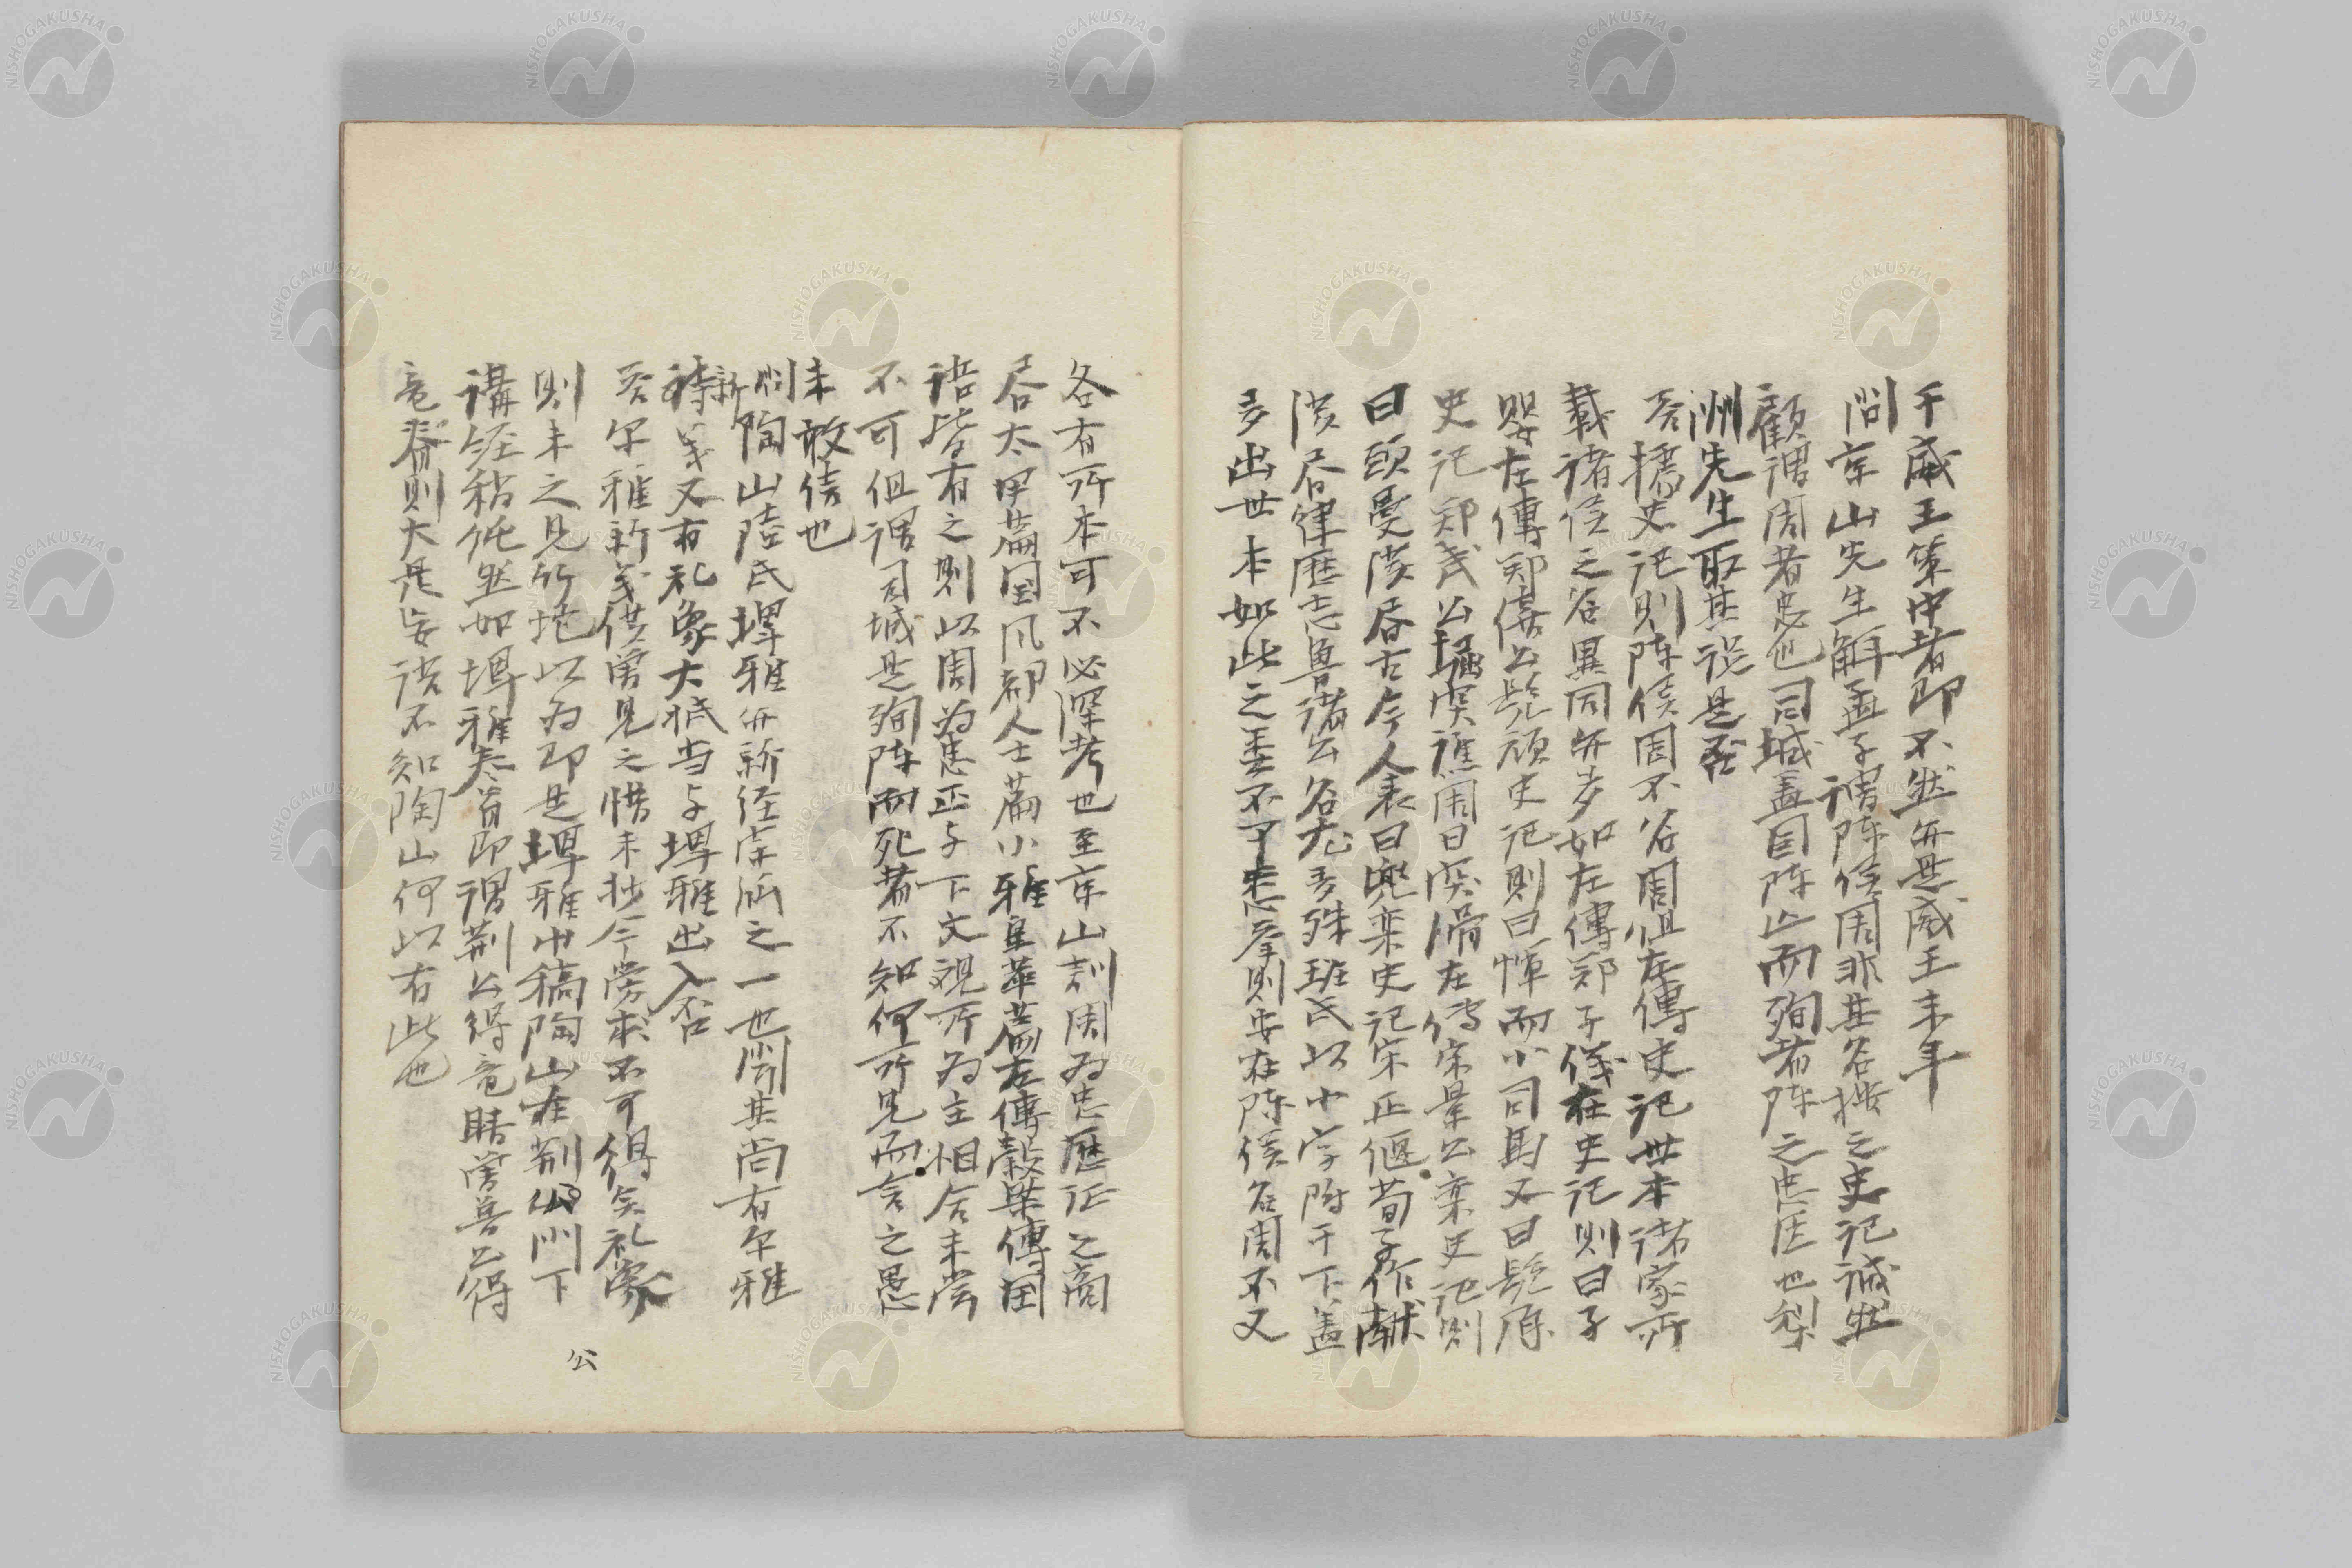 于威王策中者即不然年是威王末年
問京山先生解孟子謂陳侯周非其名挍之史記誠然
顧謂周者忠也司城蓋因陳亡而殉者陳之忠臣也梨
洲先生取其説是否
答據史記則陳侯固不名周但左傳史記世本諸家所
載諸侯之名異同所多如左傳鄭子儀在史記則曰子
嬰左傳鄭僖公髡頑史記則曰惲而小司馬又曰髡原
史記鄭武公掘突譙周曰突滑左傳宋景公欒史記則
曰頭曼漢書古今人表曰兜欒史記宋王偃荀子作獻
漢書律歴志魯諸公名尤多殊班氏以小字附于下蓋
多出世本如此之委不了悉庠則安在陳侯名周不又
各有所本可不必深考也至京山訓周為忠歴証之商
書太甲萹国風都人士萹小雅皇華萹左傳穀梁傳国
語皆有之則以周為忠正与下文視所為主相合未嘗
不可但謂司城是殉陳而死者不知何所見而言之愚
未敢信也
問陶山陸氏埤雅所新経字説之一也聞其尚有尔雅
新
詩義又有礼象大抵当与埤雅出入否
答尔雅新義僕曽見之惜未抄今旁求不可得矣礼象
則未之見竹垞以為即是埤雅中稿陶山在荊公門下
講経稍純然如埤雅卷首即謂荊公得竜睛曽魯公得
竜脊則大是妄語不知陶山何以有此也
公
NISHOGAKUSHA